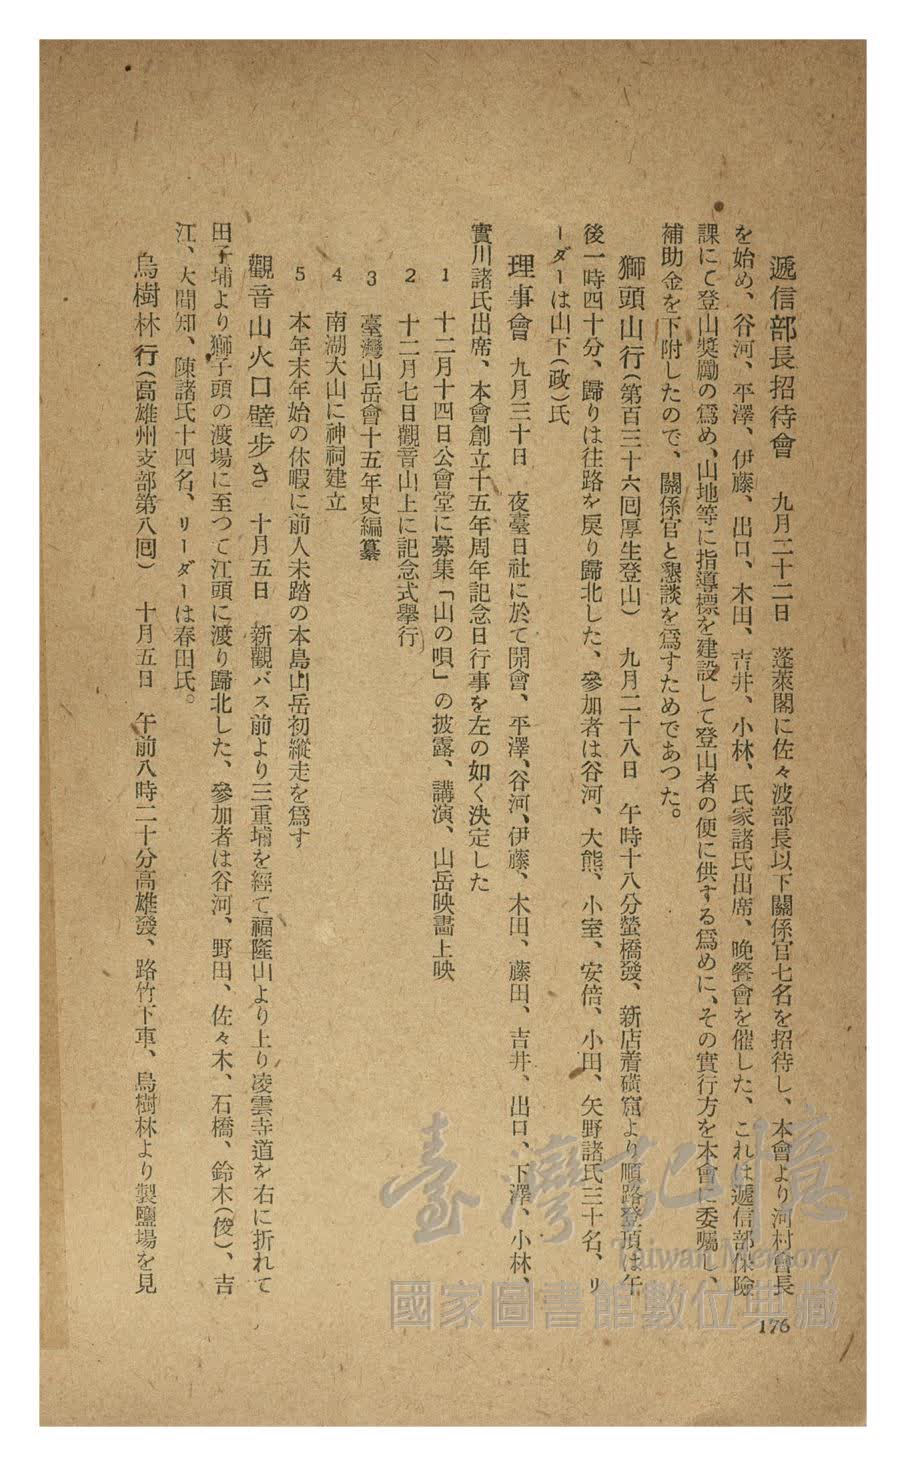 遞信部長招待會　九月二十二日　蓬萊閣に佐々波部長以下關係官七名を招待し、本會より河村會長
を始め、谷河、平澤、伊藤、出口、木田、吉井、小林、氏家諸氏出席、晩餐會を催した、これは遞信部保險
課にて登山奬勵の爲め、山地等に指導標を建設して登山者の便に供する爲めに、その實行方を本會に委囑し、
補助金を下附したので、關係官と懇談を爲すためであつた。
獅頭山行（第百三十六囘厚生登山）　九月二十八日　午時十八分螢橋發、新店着礦窟より順路登頂は午
後一時四十分、歸りは往路を戾り歸北した、參加者は谷河、大熊、小室、安倍、小田、矢野諸氏三十名、リ
ーダーは山下（政）氏
理事會　九月三十日　夜臺日社に於て開會、平澤、谷河、伊藤、木田、藤田、吉井、出口、下澤、小林、
實川諸氏出席、本會創立十五年周年記念日行事を左の如く決定した
1　十二月十四日公會堂に募集「山の唄」の披露、講演、山岳映畵上映
2　十二月七日觀音山上に記念式擧行
3　臺灣山岳會十五年史編纂
4　南湖大山に神祠建立
5　本年末年始の休暇に前人未踏の本島山岳初縱走を爲す
觀音山火口壁步き　十月五日　新觀バス前より三重埔を經て福隆山より上り凌雲寺道を右に折れて
田子埔より獅子頭の渡場に至つて江頭に渡り歸北した、參加者は谷河、野田、佐々木、石橋、鈴木（俊）、吉
江、大間知、陳諸氏十四名、リーダーは春田氏。
烏樹林行（高雄州支部第八囘）　十月五日　午前八時二十分高雄發、路竹下車、烏樹林より製鹽場を見
176
臺灣記憶
Taiwan Memory
國家圖書館數位典藏